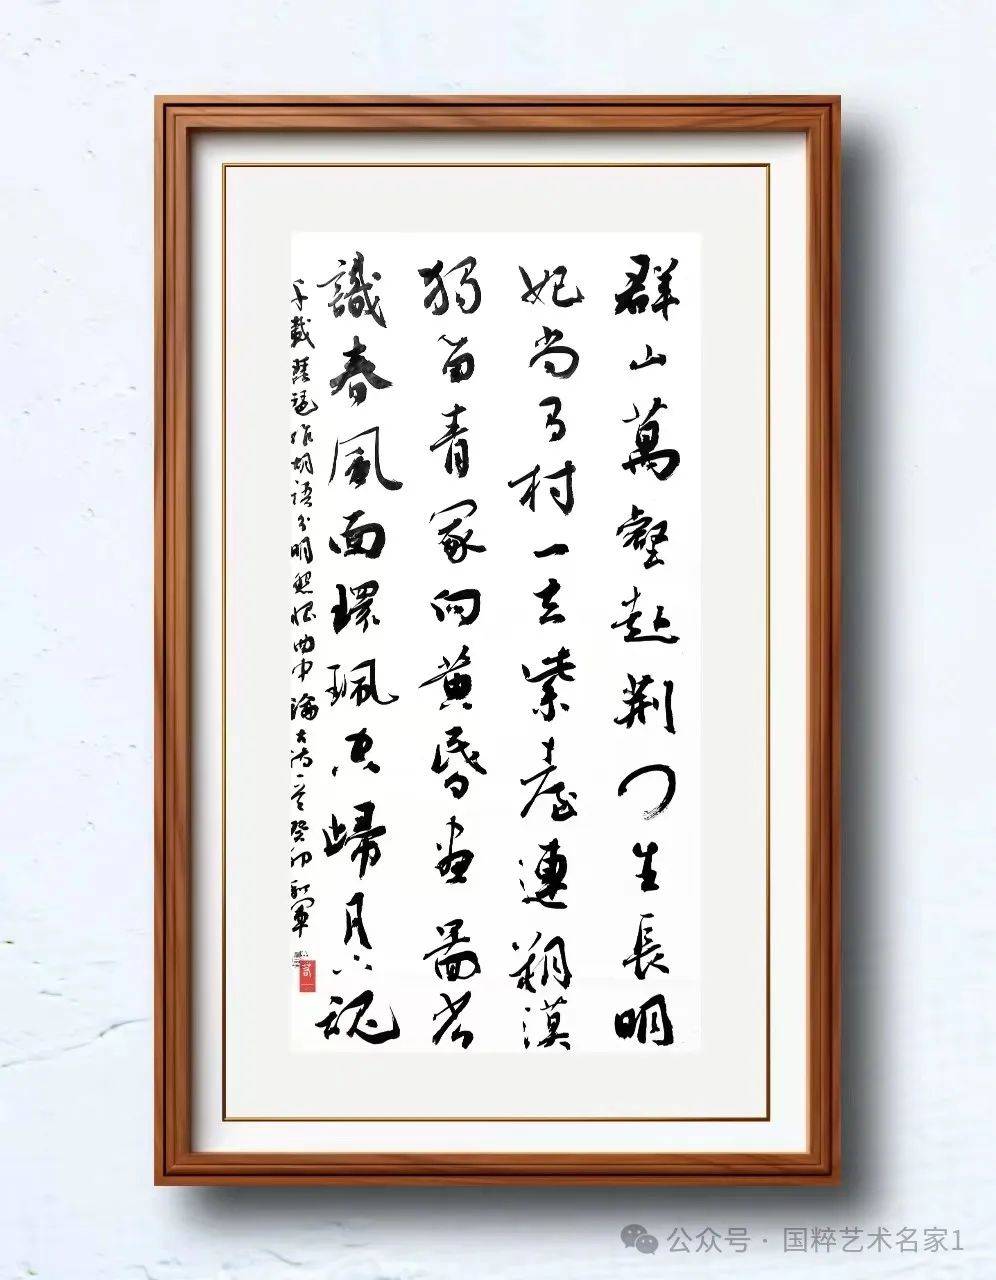 群山萬壑赴荆门生長明
妃尚有村一去紫臺連朔漠
獨留青冢向黃昏畫圖省
識春風面環珮空歸月下魂
千載琵琶作胡語分明怨恨曲中論古诗一首癸卯軍
公众号 · 国粹艺术名家1